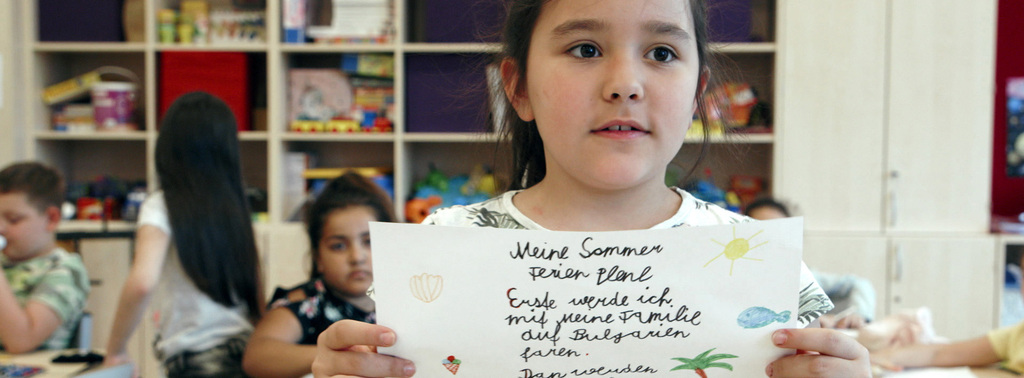 Meine Sommer
Ferien Plenl
Erste werde ich
mit Meine Familie
auf Bulgarien
faren.
Dan werden